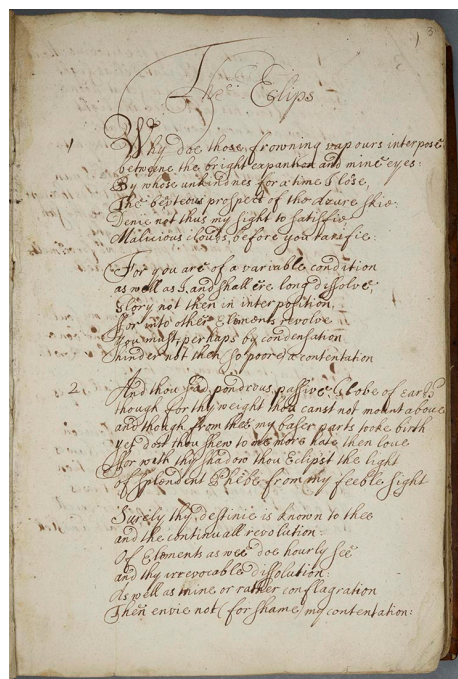 3
The Eclips
1
Why doe those frowning vapours interpose
betweene the bright expantion and mine eyes:
By whose unkindnes for a time I lose,
The beuteous prospect of the azure skie
Denie not thus my sight to satisfie
Malicious clouds, before you rarifie:
For you are of a variable condition
as well as I, and shall ere long dissolve
Glory not then in interposition,
ffor into other Elements revolve
You must, perhaps by condensation
hinder not then (so poore) a contentation
2
And thou sad, ponderous, passive Globe of earth
though for thy weight thou canst not mount above
and though from thee my baser parts tooke birth
yet dost thou shew to me more hate then love
ffor with thy shadow thou Eclipst the light
of splendent Phebe from my feeble sight
Surely thy destinie is known to thee
and the continuall revolution:
Of Elements as wee doe hourly see
and thy irrevocable dissolution:
As well as mine or rather conflagration
Then envie not (for shame) my contentation: